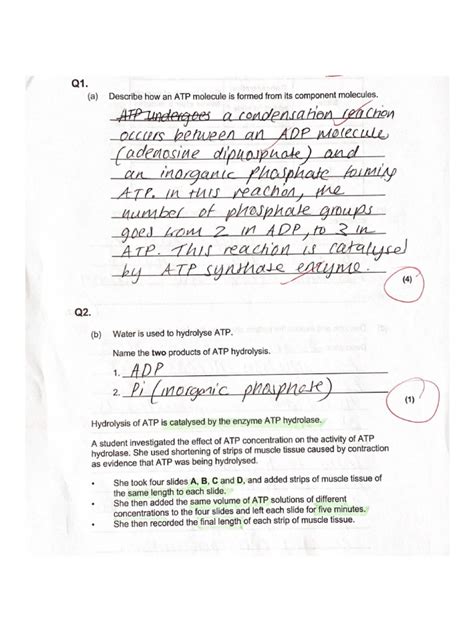 Q1.
(a) Describe how an ATP molecule is formed from its component molecules.
ATP undergoes a condensation reaction
occurs between an ADP molecule
(adenosine diphosphate) and
an inorganic phosphate forming
ATP. In this reaction, the
number of phosphate groups
goes from 2 in ADP, to 3 in
ATP. This reaction is catalysed
by ATP synthase enzyme.
(4)
Q2.
(b) Water is used to hydrolyse ATP.
Name the two products of ATP hydrolysis.
1. ADP
2. Pi (inorganic phosphate)
(1)
Hydrolysis of ATP is catalysed by the enzyme ATP hydrolase.
A student investigated the effect of ATP concentration on the activity of ATP
hydrolase. She used shortening of strips of muscle tissue caused by contraction
as evidence that ATP was being hydrolysed.
• She took four slides A, B, C and D, and added strips of muscle tissue of
the same length to each slide.
• She then added the same volume of ATP solutions of different
concentrations to the four slides and left each slide for five minutes.
• She then recorded the final length of each strip of muscle tissue.